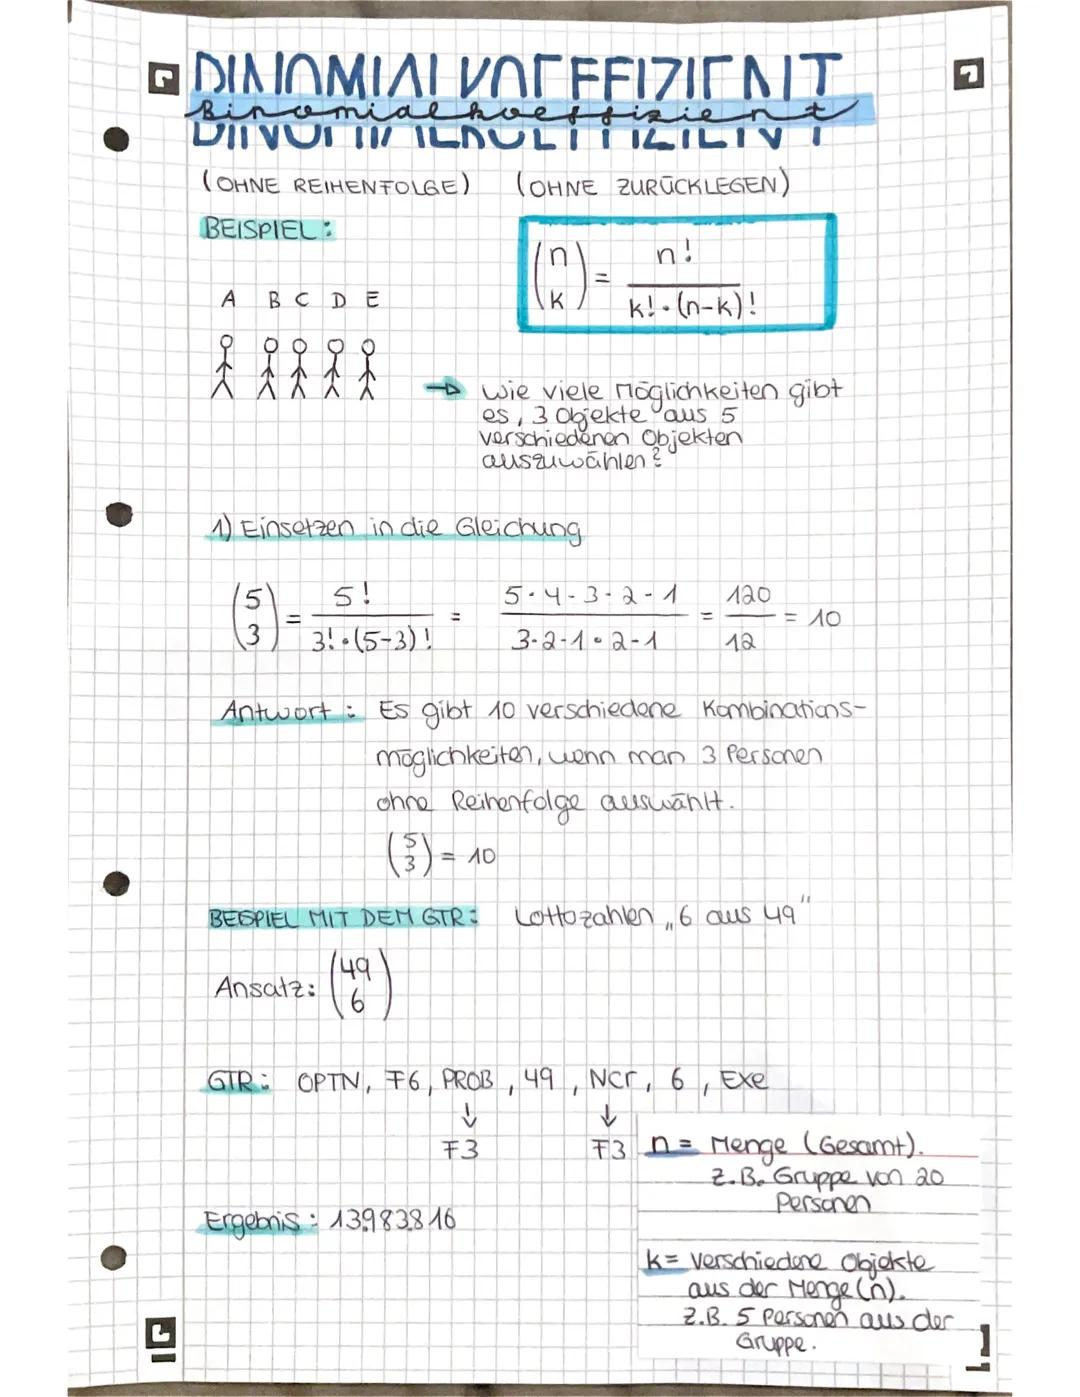 BINOMIALKOEFFIZIENT
Binomialkoeffizient
(OHNE REIHENFOLGE) (OHNE ZURÜCKLEGEN)
BEISPIEL:
(n k) = n! / k! · (n-k)!
A B C D E
→ Wie viele Möglichkeiten gibt
es, 3 Objekte aus 5
verschiedenen Objekten
auszuwählen?
1) Einsetzen in die Gleichung
(5 3) = 5! / 3! · (5-3)! = 5·4·3·2·1 / 3·2·1·2·1 = 120 / 12 = 10
Antwort: Es gibt 10 verschiedene Kombinations-
möglichkeiten, wenn man 3 Personen
ohne Reihenfolge auswählt.
(5 3) = 10
BEISPIEL MIT DEM GTR: Lottozahlen „6 aus 49"
Ansatz: (49 6)
GTR: OPTN, F6, PROB, 49, NCr, 6, Exe
↓ ↓
F3 F3
Ergebnis: 13983816
n = Menge (Gesamt).
z.B. Gruppe von 20
Personen
k = verschiedene Objekte
aus der Menge (n).
z.B. 5 Personen aus der
Gruppe.